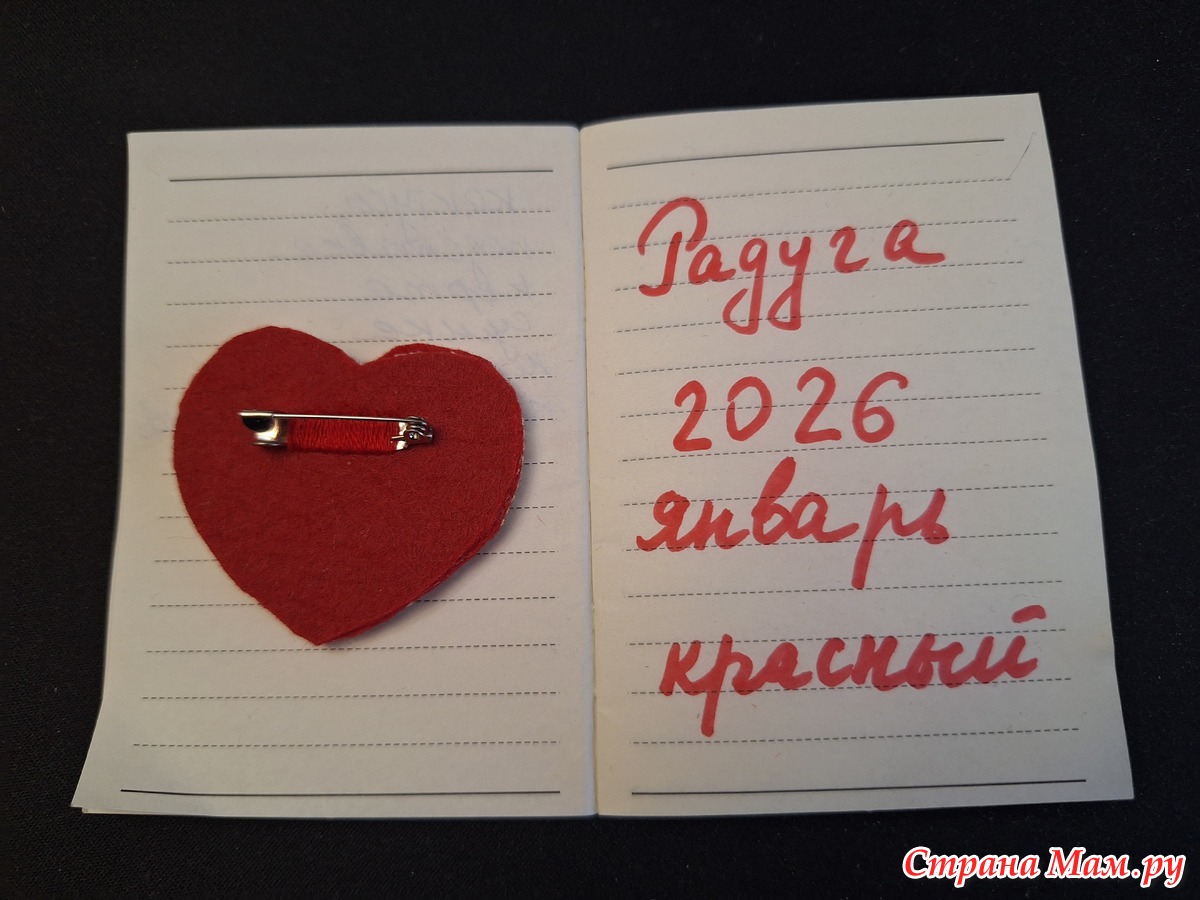 Радуга
2026
январь
красный
Страна Мам.ру